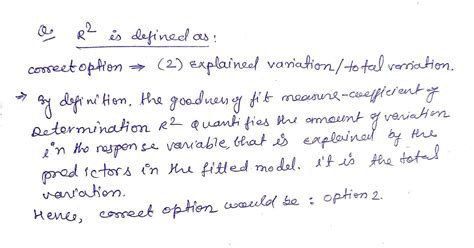 Q. R² is defined as:
correct option ⇒ (2) Explained variation/total variation.
→ By definition, the goodness of fit measure-coefficient of
Determination R² quantifies the amount of variation
in the response variable, that is explained by the
predictors in the fitted model. it is the total
variation.
Hence, correct option would be : option 2.